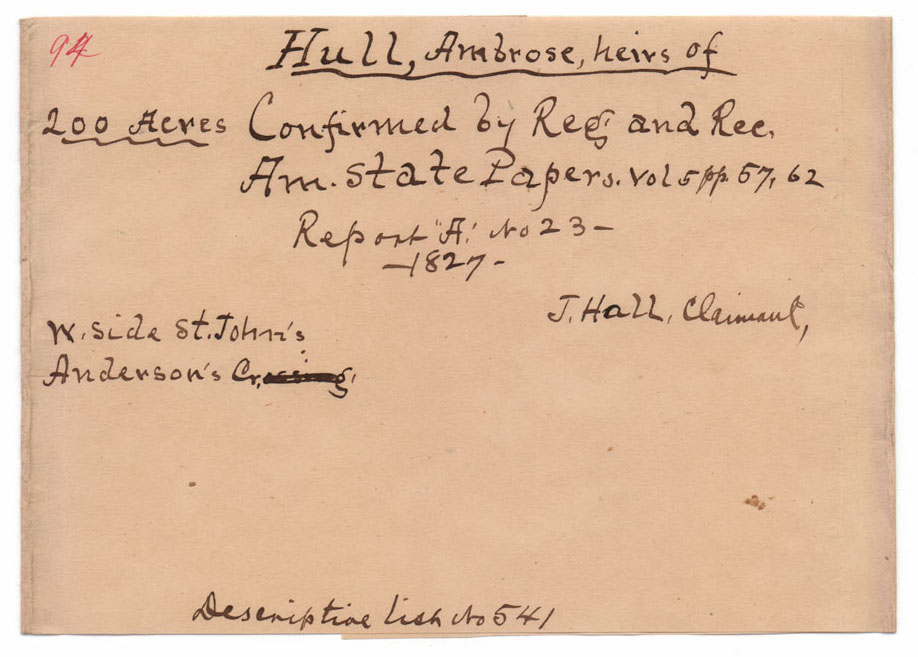 94
Hull, Ambrose, heirs of
200 Acres Confirmed by Reg and Rec.
Am. State Papers. Vol 5 pp. 57, 62
Report "A." No 23 –
– 1827 –
J. Hall, Claimant,
W. side St. John's
Anderson's Cr.
Descriptive list No 541